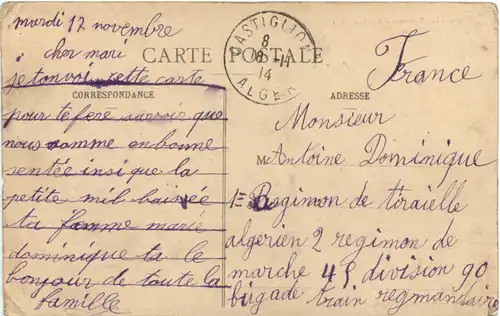 mardi 17 novembre
cher mari
CARTE POSTALE
CASTIGLIONE
8
14
ALGER
je tonvoi cette carte
CORRESPONDANCE
pour te fere savoir que
nous somme en bonne
sentée insi que la
petite mil baisée
ta famme marie
dominique ta le
bonjour de toute la
famille
France
ADRESSE
Monsieur
M Antoine Dominique
Regimon de tiraielle
algerien 2 regimon de
marche 45 division 90
bigade train regmandaire